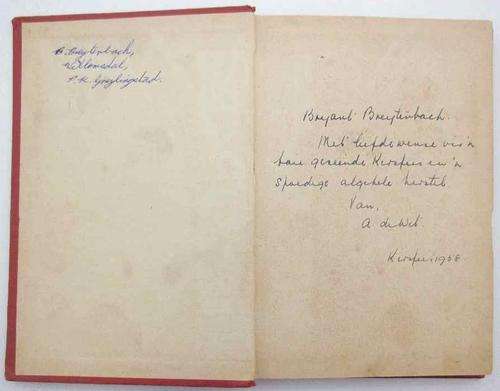 B. Breytenbach,
Welomsdal,
P.K. Greylingstad.
Breyant Breytenbach.
Met liefdewense vir 'n
baie geseënde Kersfees en 'n
spoedige algehele herstel.
Van,
A. de Wet.
Kersfees, 1958